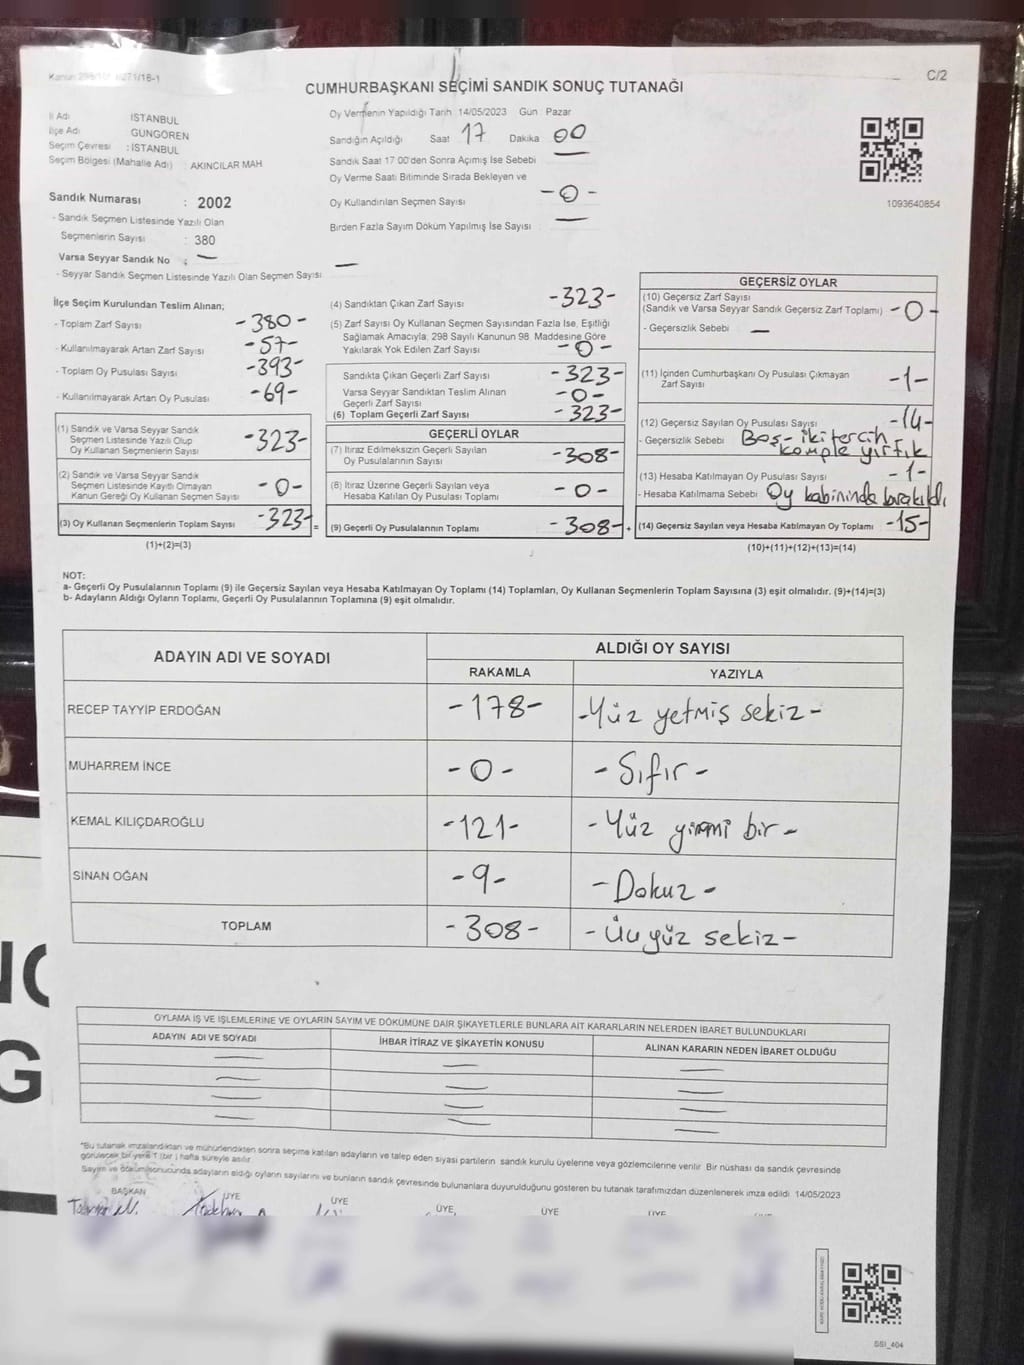 C/2
CUMHURBAŞKANI SEÇİMİ SANDIK SONUÇ TUTANAĞI
İl Adı İSTANBUL
İlçe Adı GÜNGÖREN
Seçim Çevresi : İSTANBUL
Seçim Bölgesi (Mahalle Adı) : AKINCILAR MAH
Sandık Numarası : 2002
- Sandık Seçmen Listesinde Yazılı Olan
Seçmenlerin Sayısı : 380
Varsa Seyyar Sandık No : —
- Seyyar Sandık Seçmen Listesinde Yazılı Olan Seçmen Sayısı —
Oy Vermenin Yapıldığı Tarih 14/05/2023 Gün : Pazar
Sandığın Açıldığı Saat 17 Dakika 00
Sandık Saat 17 00'den Sonra Açımış İse Sebebi —
Oy Verme Saati Bitiminde Sırada Bekleyen ve
Oy Kullandırılan Seçmen Sayısı -0-
Birden Fazla Sayım Döküm Yapılmış İse Sayısı —
1093640854
İlçe Seçim Kurulundan Teslim Alınan;
- Toplam Zarf Sayısı -380-
- Kullanılmayarak Artan Zarf Sayısı -57-
- Toplam Oy Pusulası Sayısı -393-
- Kullanılmayarak Artan Oy Pusulası -69-
(1) Sandık ve Varsa Seyyar Sandık
Seçmen Listesinde Yazılı Olup
Oy Kullanan Seçmenlerin Sayısı -323-
(2) Sandık ve Varsa Seyyar Sandık
Seçmen Listesinde Kayıtlı Olmayan
Kanun Gereği Oy Kullanan Seçmen Sayısı -0-
(3) Oy Kullanan Seçmenlerin Toplam Sayısı -323- =
(1)+(2)=(3)
(4) Sandıktan Çıkan Zarf Sayısı -323-
(5) Zarf Sayısı Oy Kullanan Seçmen Sayısından Fazla İse, Eşitliği
Sağlamak Amacıyla; 298 Sayılı Kanunun 98. Maddesine Göre
Yakılarak Yok Edilen Zarf Sayısı -0-
Sandıkta Çıkan Geçerli Zarf Sayısı -323-
Varsa Seyyar Sandıktan Teslim Alınan
Geçerli Zarf Sayısı -0-
(6) Toplam Geçerli Zarf Sayısı -323-
GEÇERLİ OYLAR
(7) İtiraz Edilmeksizin Geçerli Sayılan
Oy Pusulalarının Sayısı -308-
(8) İtiraz Üzerine Geçerli Sayılan veya
Hesaba Katılan Oy Pusulası Toplamı -0-
(9) Geçerli Oy Pusulalarının Toplamı -308- +
GEÇERSİZ OYLAR
(10) Geçersiz Zarf Sayısı
(Sandık ve Varsa Seyyar Sandık Geçersiz Zarf Toplamı) -0-
- Geçersizlik Sebebi —
(11) İçinden Cumhurbaşkanı Oy Pusulası Çıkmayan
Zarf Sayısı -1-
(12) Geçersiz Sayılan Oy Pusulası Sayısı -14-
- Geçersizlik Sebebi Boş - iki tercih
komple yırtık
(13) Hesaba Katılmayan Oy Pusulası Sayısı -1-
- Hesaba Katılmama Sebebi Oy kabininde bırakıldı
(14) Geçersiz Sayılan veya Hesaba Katılmayan Oy Toplamı -15-
(10)+(11)+(12)+(13)=(14)
NOT:
a- Geçerli Oy Pusulalarının Toplamı (9) ile Geçersiz Sayılan veya Hesaba Katılmayan Oy Toplamı (14) Toplamları, Oy Kullanan Seçmenlerin Toplam Sayısına (3) eşit olmalıdır. (9)+(14)=(3)
b- Adayların Aldığı Oyların Toplamı, Geçerli Oy Pusulalarının Toplamına (9) eşit olmalıdır.
ADAYIN ADI VE SOYADI ALDIĞI OY SAYISI
RAKAMLA YAZIYLA
RECEP TAYYİP ERDOĞAN -178- -Yüz yetmiş sekiz-
MUHARREM İNCE -0- -Sıfır-
KEMAL KILIÇDAROĞLU -121- -Yüz yirmi bir-
SİNAN OĞAN -9- -Dokuz-
TOPLAM -308- -Üçyüz sekiz-
OYLAMA İŞ VE İŞLEMLERİNE VE OYLARIN SAYIM VE DÖKÜMÜNE DAİR ŞİKAYETLERLE BUNLARA AİT KARARLARIN NELERDEN İBARET BULUNDUKLARI
ADAYIN ADI VE SOYADI İHBAR İTİRAZ VE ŞİKAYETİN KONUSU ALINAN KARARIN NEDEN İBARET OLDUĞU
*Bu tutanak imzalandıktan ve mühürlendikten sonra seçime katılan adayların ve talep eden siyasi partilerin sandık kurulu üyelerine veya gözlemcilerine verilir. Bir nüshası da sandık çevresinde
görülecek bir yere 1 (bir ) hafta süreyle asılır.
Sayım ve döküm sonucunda adayların aldığı oyların sayılarını ve bunların sandık çevresinde bulunanlara duyurulduğunu gösteren bu tutanak tarafımızdan düzenlenerek imza edildi. 14/05/2023
BAŞKAN ÜYE ÜYE ÜYE ÜYE ÜYE
SSI_404